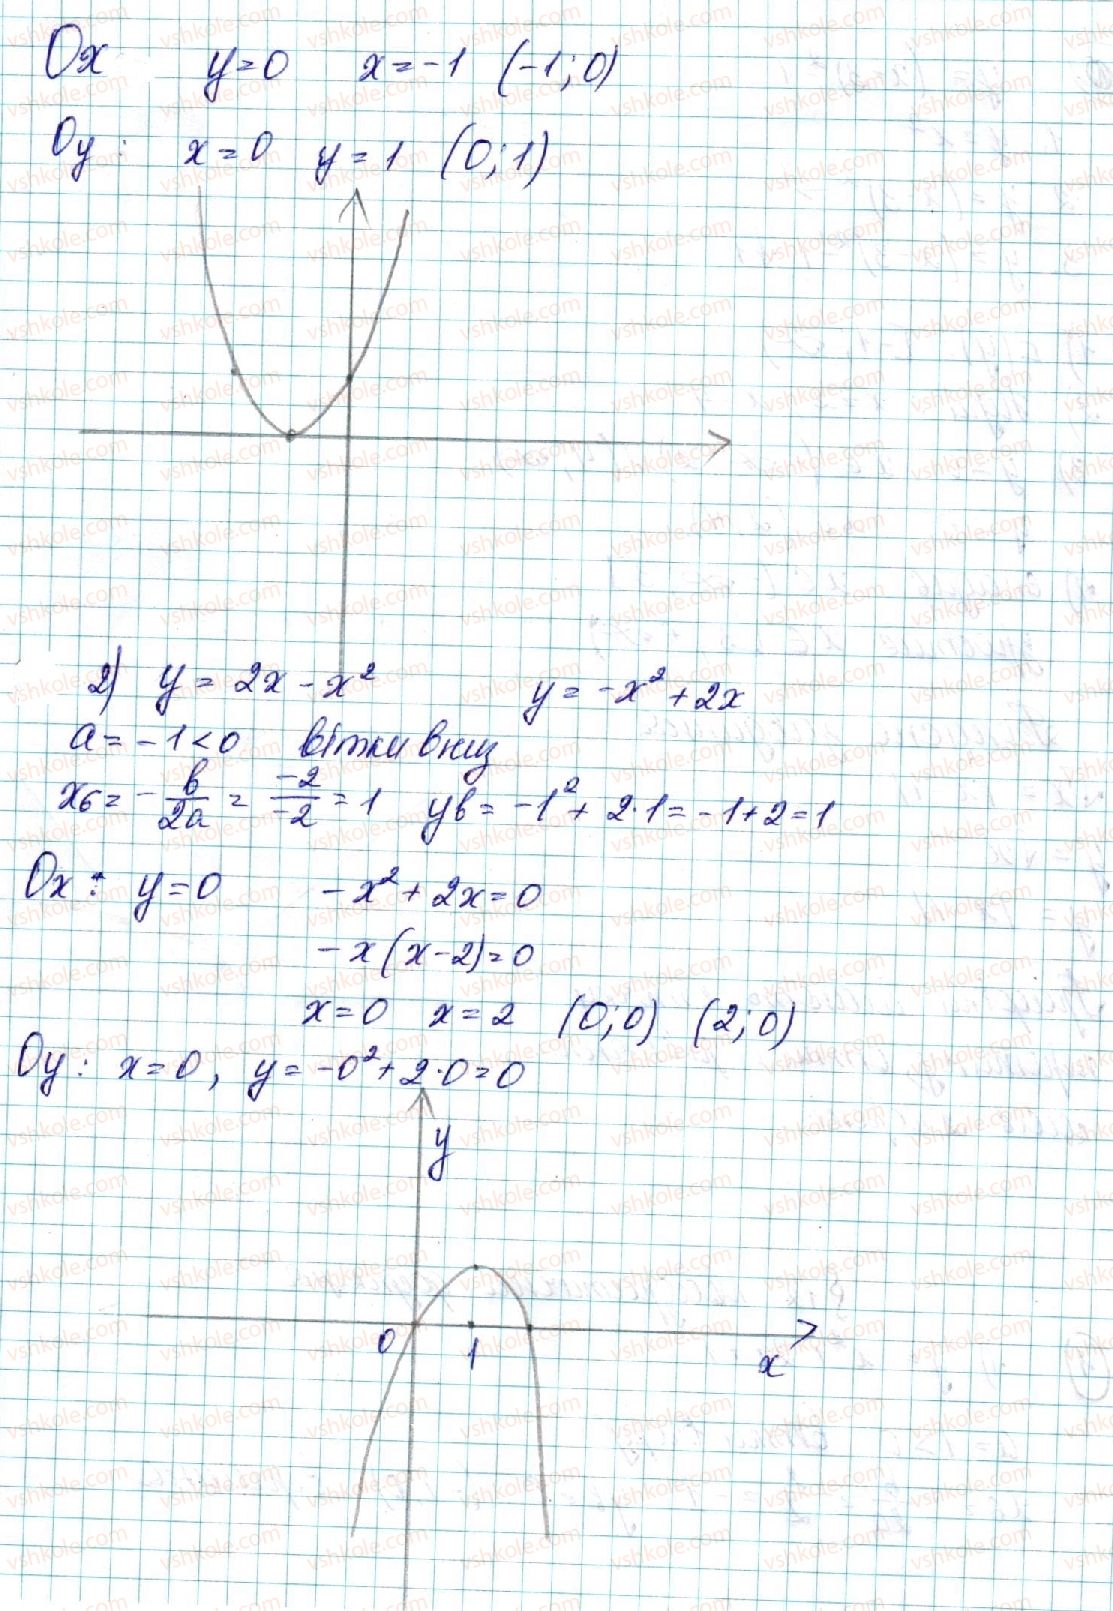 Ox y=0 x=-1 (-1;0)
Oy: x=0 y=1 (0;1)
2) y = 2x - x² y = -x² + 2x
a = -1 < 0 вітки вниз
xв = -в/2a = -2/-2 = 1 yв = -1² + 2·1 = -1 + 2 = 1
Ox: y=0 -x² + 2x = 0
-x(x-2) = 0
x=0 x=2 (0;0) (2;0)
Oy: x=0, y = -0² + 2·0 = 0
y
0 1 x